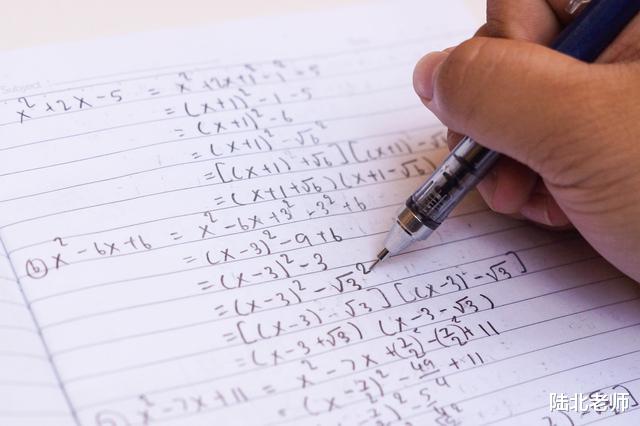 Subject
x² + 2x - 5 = x² + 2x + 1² - 1² - 5
= (x+1)² - 1 - 5
= (x+1)² - 6
= (x+1)² - √6²
= [(x+1) + √6] [(x+1) - √
= (x+1+√6) (x+1-√6)
(b) x² - 6x + 6 = x² - 6x + 3² - 3² + 6
= (x-3)² - 9 + 6
= (x-3)² - 3
= (x-3)² - √3²
= [(x-3) - √3] [(x-3) - √3]
= (x-3+√3) (x-3-√3)
x² - 7x + 11 = x² - 7x + (7/2)² - (7/2)² + 11
= (x - 7/2)² - 49/4 + 11
陆北老师